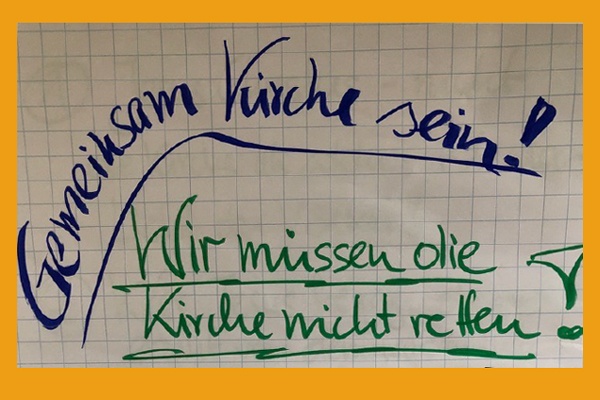 Gemeinsam Kirche sein!
Wir müssen die
Kirche nicht retten!